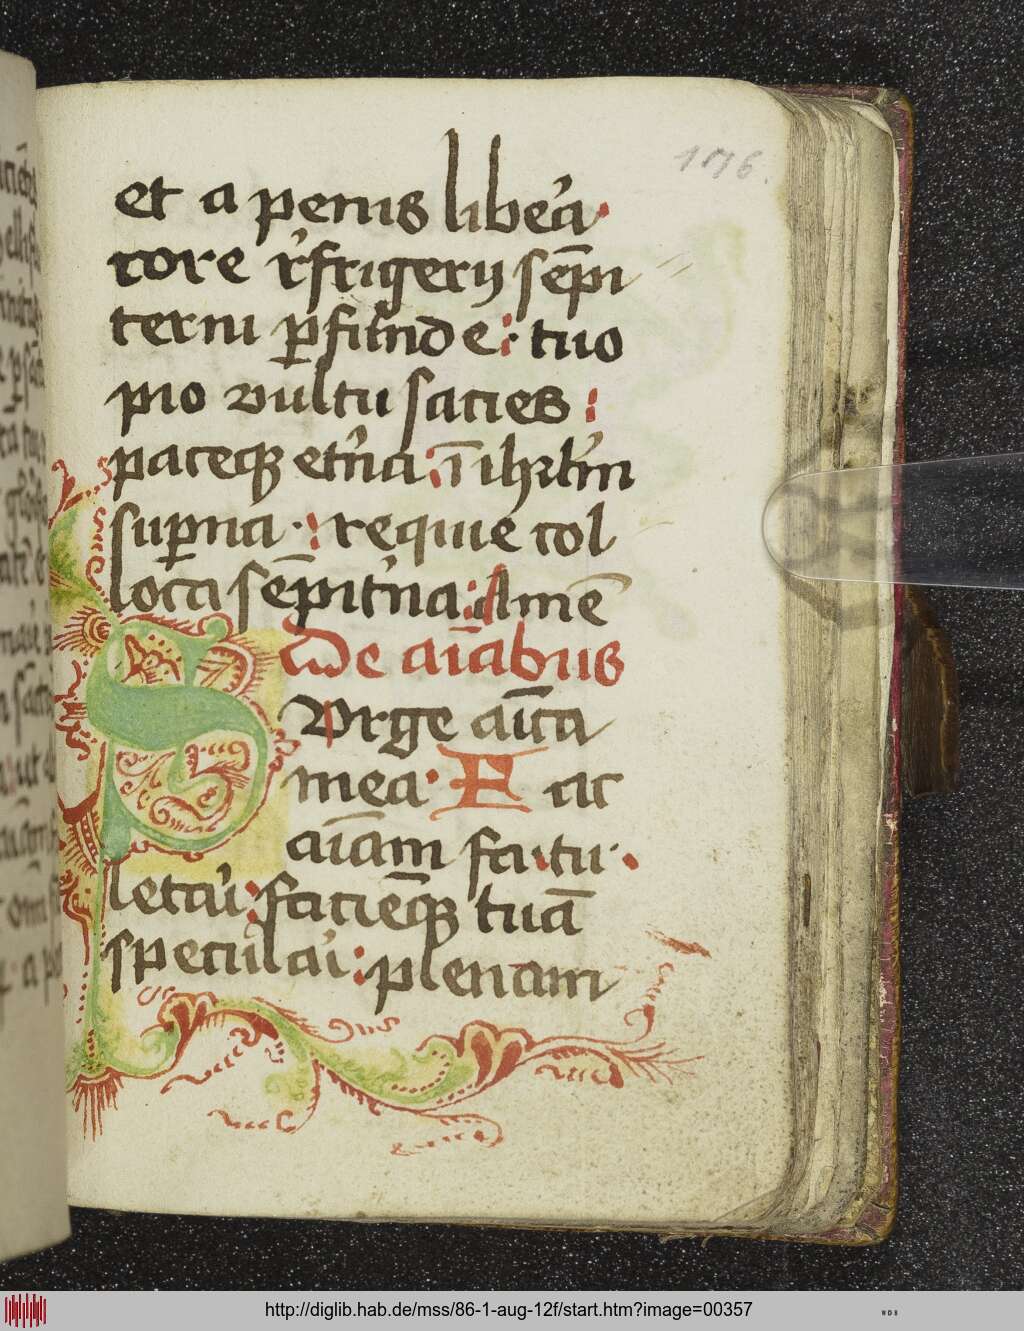 176.
et a penis libe'a
rore r'frigerij sēpi
terni ꝑfunde: tuo
pio vultu sacies:
paceqꝫ et'na: ī ihrl'm
suꝑna: requiē col
loca sēpit'na: Amē
De aīabus
SUrge aīca
mea. Fac
aīam fa. tu.
letari: faciēqꝫ tuā
speculari: plenam
http://diglib.hab.de/mss/86-1-aug-12f/start.htm?image=00357